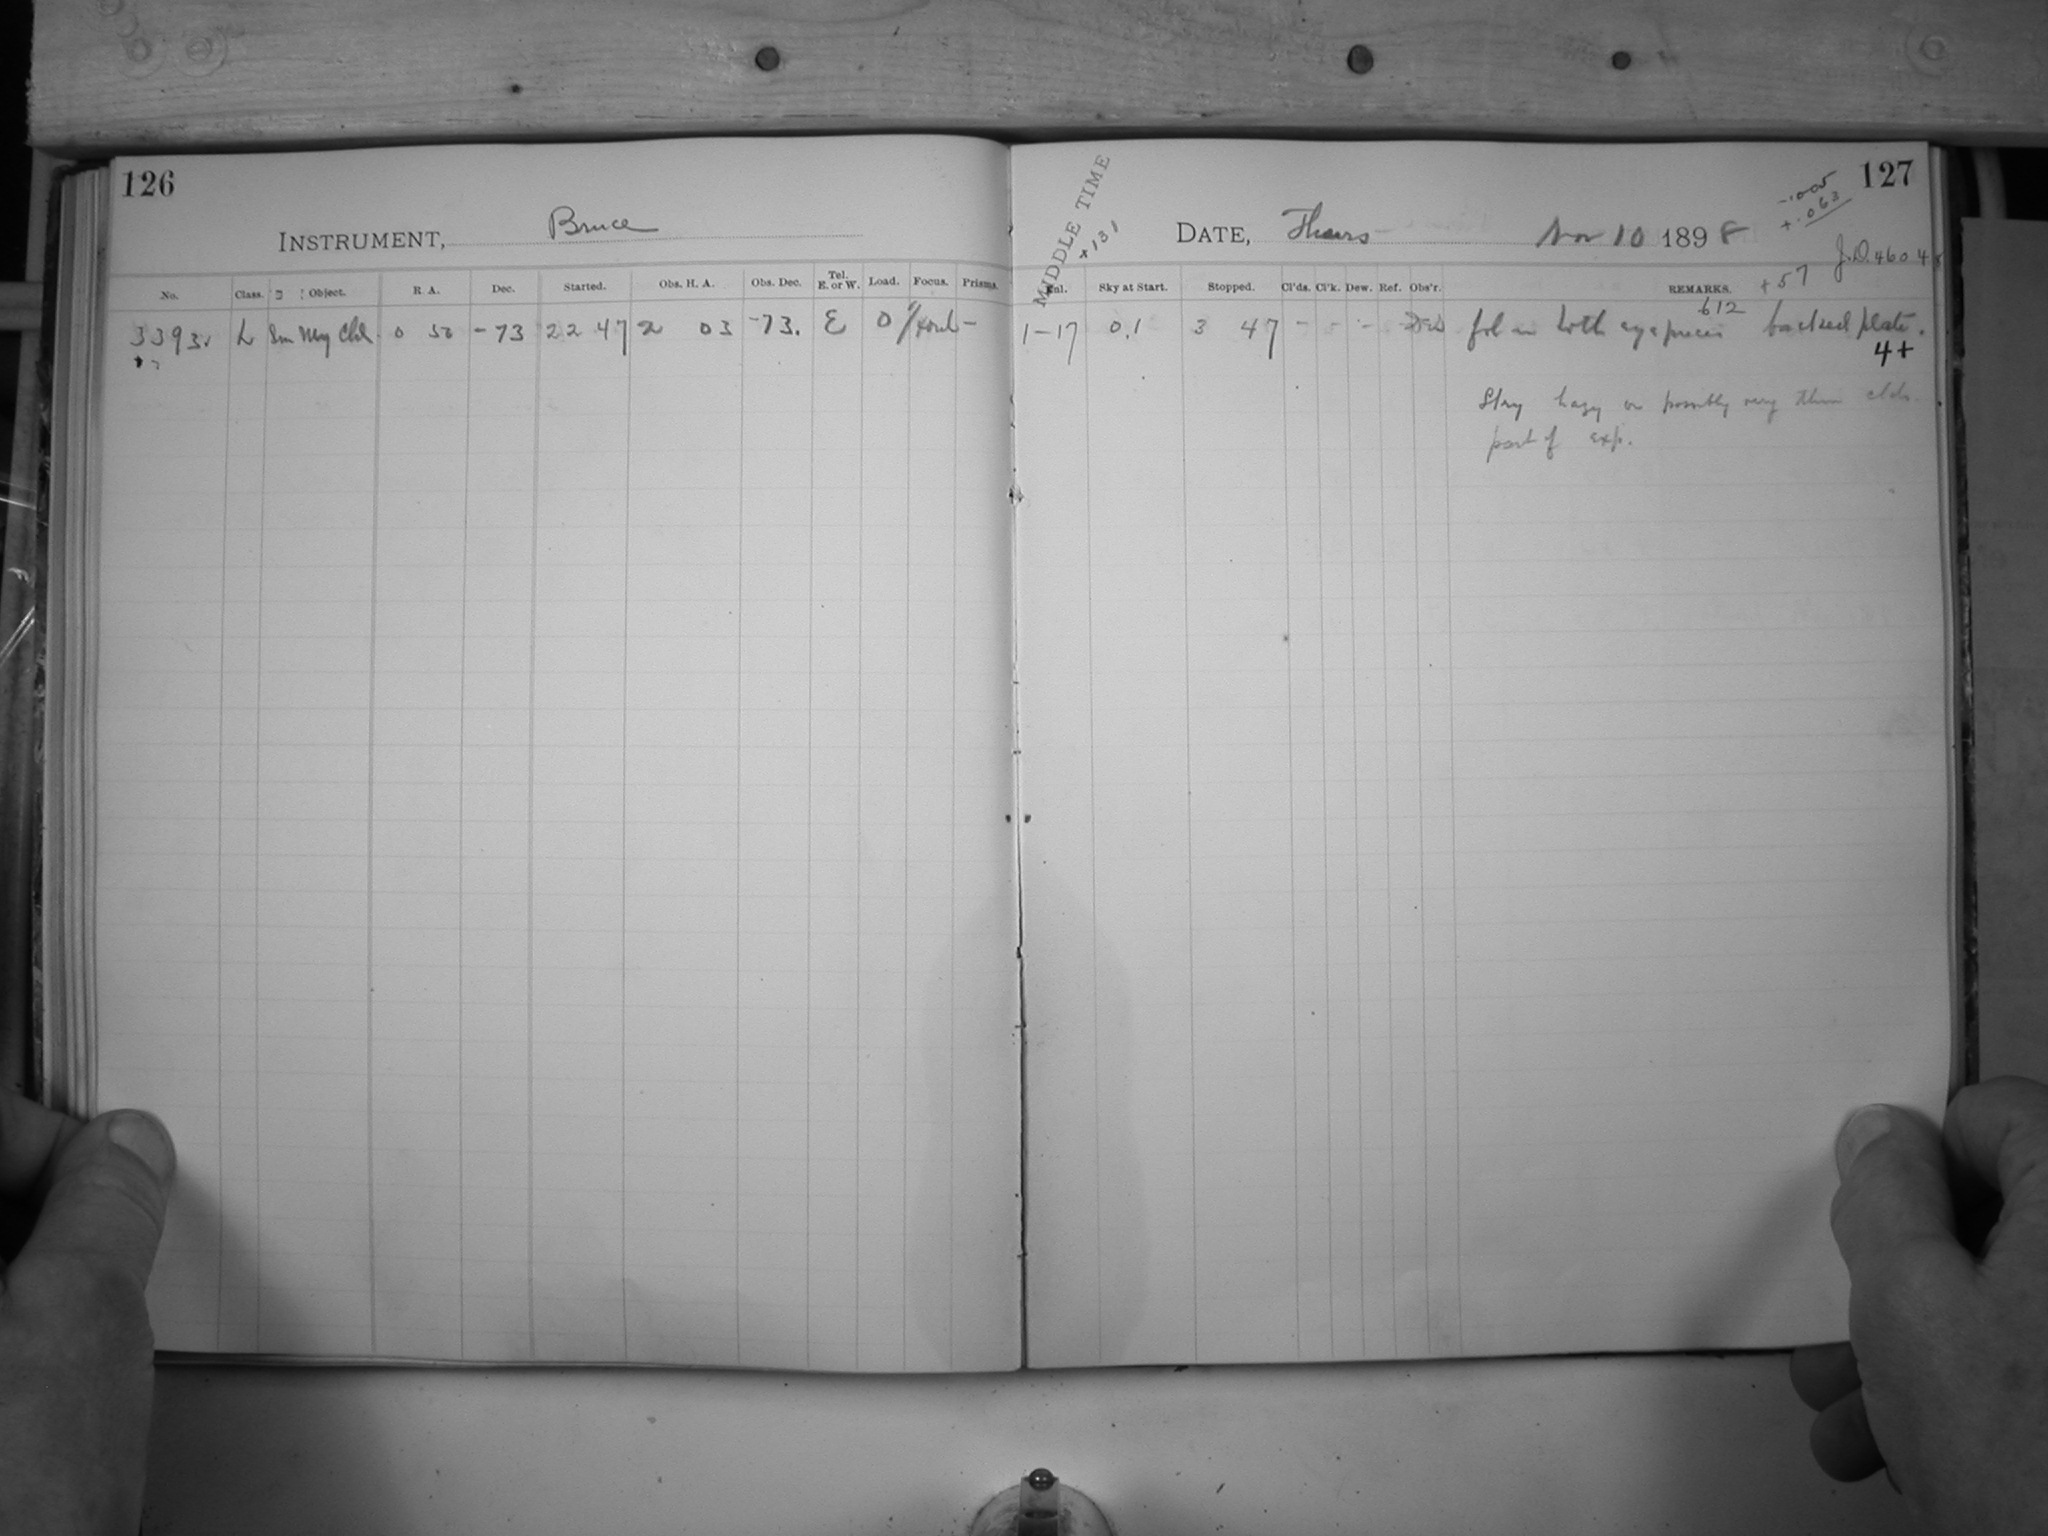 126
INSTRUMENT, Bruce
No. Class. Object. R. A. Dec. Started. Obs. H. A. Obs. Dec. Tel. E. or W. Load. Focus. Prisms.
3393 L Sm Mg Cld. 0 50 -73 22 47 2 03 -73. E 0 -
127
MIDDLE TIME
DATE, Thurs Nov 10 1898
+.063
J.D. 4604
+57
Sky at Start. Stopped. Cl'ds. Cl'k. Dew. Ref. Obs'r. REMARKS.
612
1-17 0.1 3 47 - - - fol in both eyepieces backed plate.
4+
Sky hazy or possibly very thin clds.
part of exp.